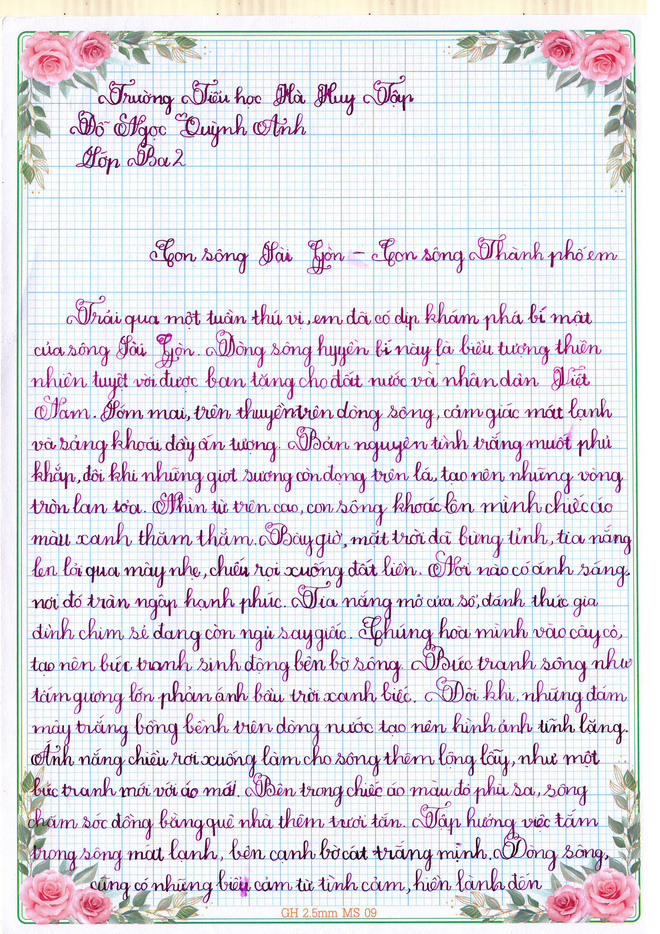 Trường Tiểu học Hà Huy Tập
Đỗ Ngọc Quỳnh Anh
Lớp Ba 2
Con sông Sài Gòn - Con sông Thành phố em
Trải qua một tuần thú vị, em đã có dịp khám phá bí mật
của sông Sài Gòn. Dòng sông huyền bí này là biểu tượng thiên
nhiên tuyệt vời được ban tặng cho đất nước và nhân dân Việt
Nam. Sớm mai, trên thuyền trên dòng sông, cảm giác mát lạnh
và sảng khoái đầy ấn tượng. Bản nguyên tinh trắng muốt phủ
khắp, đôi khi những giọt sương còn đọng trên lá, tạo nên những vòng
tròn lan tỏa. Nhìn từ trên cao, con sông khoác lên mình chiếc áo
màu xanh thăm thẳm. Bây giờ, mặt trời đã bừng tỉnh, tia nắng
len lỏi qua mây nhẹ, chiếu rọi xuống đất liền. Nơi nào có ánh sáng,
nơi đó tràn ngập hạnh phúc. Tia nắng mở cửa sổ, đánh thức gia
đình chim sẻ đang còn ngủ say giấc. Chúng hòa mình vào cây cỏ,
tạo nên bức tranh sinh động bên bờ sông. Bức tranh sông như
tấm gương lớn phản ánh bầu trời xanh biếc. Đôi khi, những đám
mây trắng bồng bềnh trên dòng nước tạo nên hình ảnh tĩnh lặng.
Ánh nắng chiều rơi xuống làm cho sông thêm lộng lẫy, như một
bức tranh mới với áo mới. Bên trong chiếc áo màu đỏ phù sa, sông
chăm sóc đồng bằng quê nhà thêm tươi tắn. Tận hưởng việc tắm
trong sông mát lạnh, bên cạnh bờ cát trắng mịnh. Dòng sông,
cũng có những biểu cảm từ tình cảm, hiền lành đến
GH 2.5mm MS 09